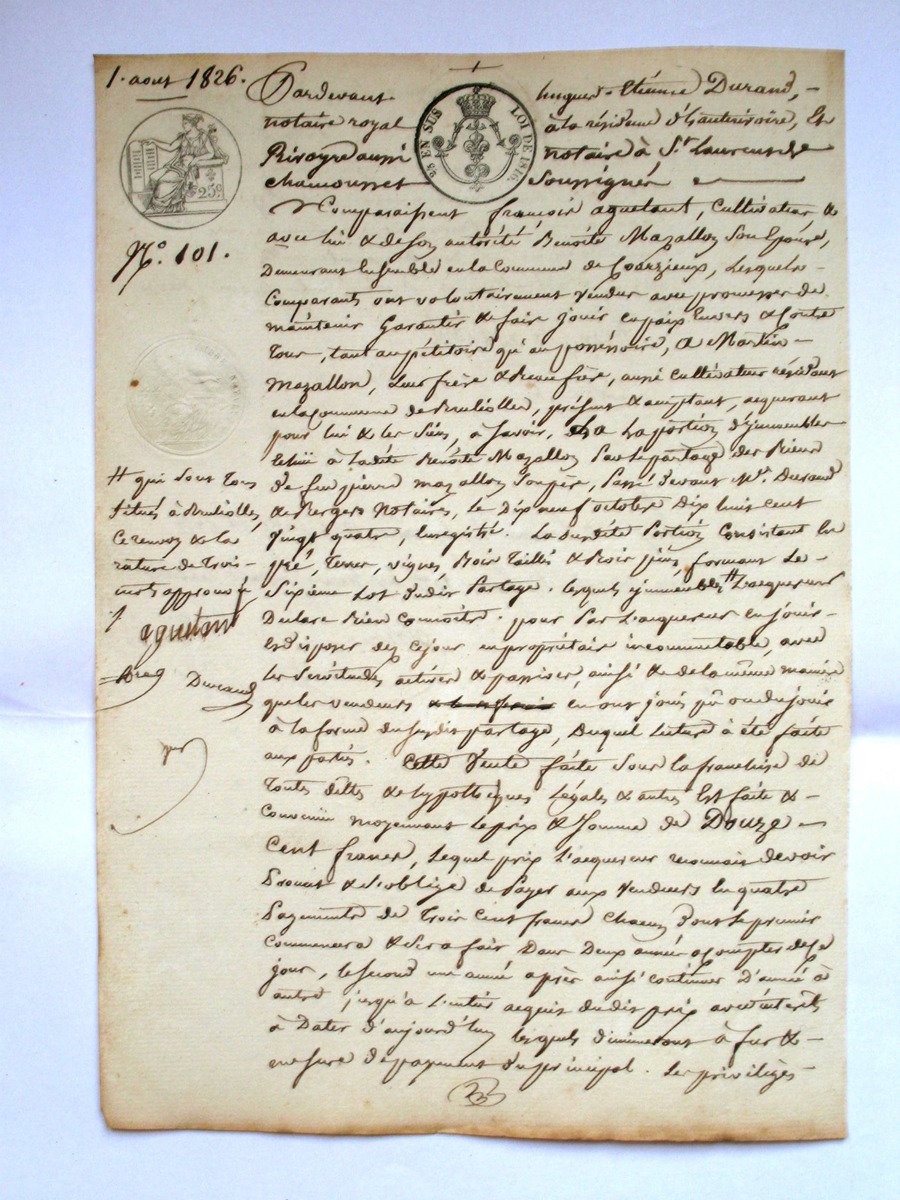 1. aout 1826.
Pardevant hugues-Etienne Durand, -
notaire royal à la résidence d'hauterivoire, Et
Rivoyre aussi notaire à St laurent de
chamousset Soussignés
25 EN SUS LOI DE 1816.
25c
N.o 101.
Comparaissent françois aguetant, Cultivateur, &
avec lui & de son autorité Benoite Mazallon Son Epouse,
Demeurant Ensemble en la Commune de Courzieux, Lesquels
Comparants ont volontairement vendu avec promesse de
maintenir Garantir & faire jouir en paix Envers & Contre
Tous, tant au pétitoire qu'au possessoire, A Martin
mazallon, Leur frère & Beau frère, aussi Cultivateur résidant
en la Commune de Bruliolles, présent & acceptant, acquerant
pour lui & les Siens, à Savoir, La portion d'immeubles
échue à Ladite Benoite Mazallon Par le partage des Biens
de feu pierre mazallon Son père, Passé devant Me. Durand
& Bergers Notaires, Le Dix neuf octobre Dix huit cent
Vingt quatre, Enregistré. La Susdite Portion Consistant En
pré, Terres, vignes Bois Taillis & Bois pins, formant Le
Sixième Lot dudit Partage. Lesquels immeubles # L'acquereur
Declare Bien Connoitre. pour Par L'acquereur En jouir
Et disposer dez cejour en propriétaire incommutable, avec
Les Servitudes actives & passives, ainsi & de la même manière
que les vendeurs en ont joui pu ou du jouir
à la forme du Susdit partage, Duquel Lecture à été faite
aux parties. Cette Vente faite Sous La franchise de
Toutes dettes & hypothèques Légales & autres Est faite &
Convenue moyennant Le prix & Somme de Douze
Cent francs, Lequel prix L'acquereur reconnait devoir
Promet & S'oblige de Payer aux Vendeurs En quatre
Payements de Trois Cent francs Chacun Dont Le premier
Commencera & Sera fait Dans Deux années a Compter de Ce
jour, le Second une année après ainsi Continuer D'année à
autre jusqu'à L'entier acquit dudit prix avec intérêts
à Dater d'aujourd'huy lesquels diminueront à fur &
mesure de payement du principal. Les privilèges
# qui Sont Tous
Situés à Brulliolles,
Ce renvoi & la
rature de Trois
mots approuvés
aguetant
Durand